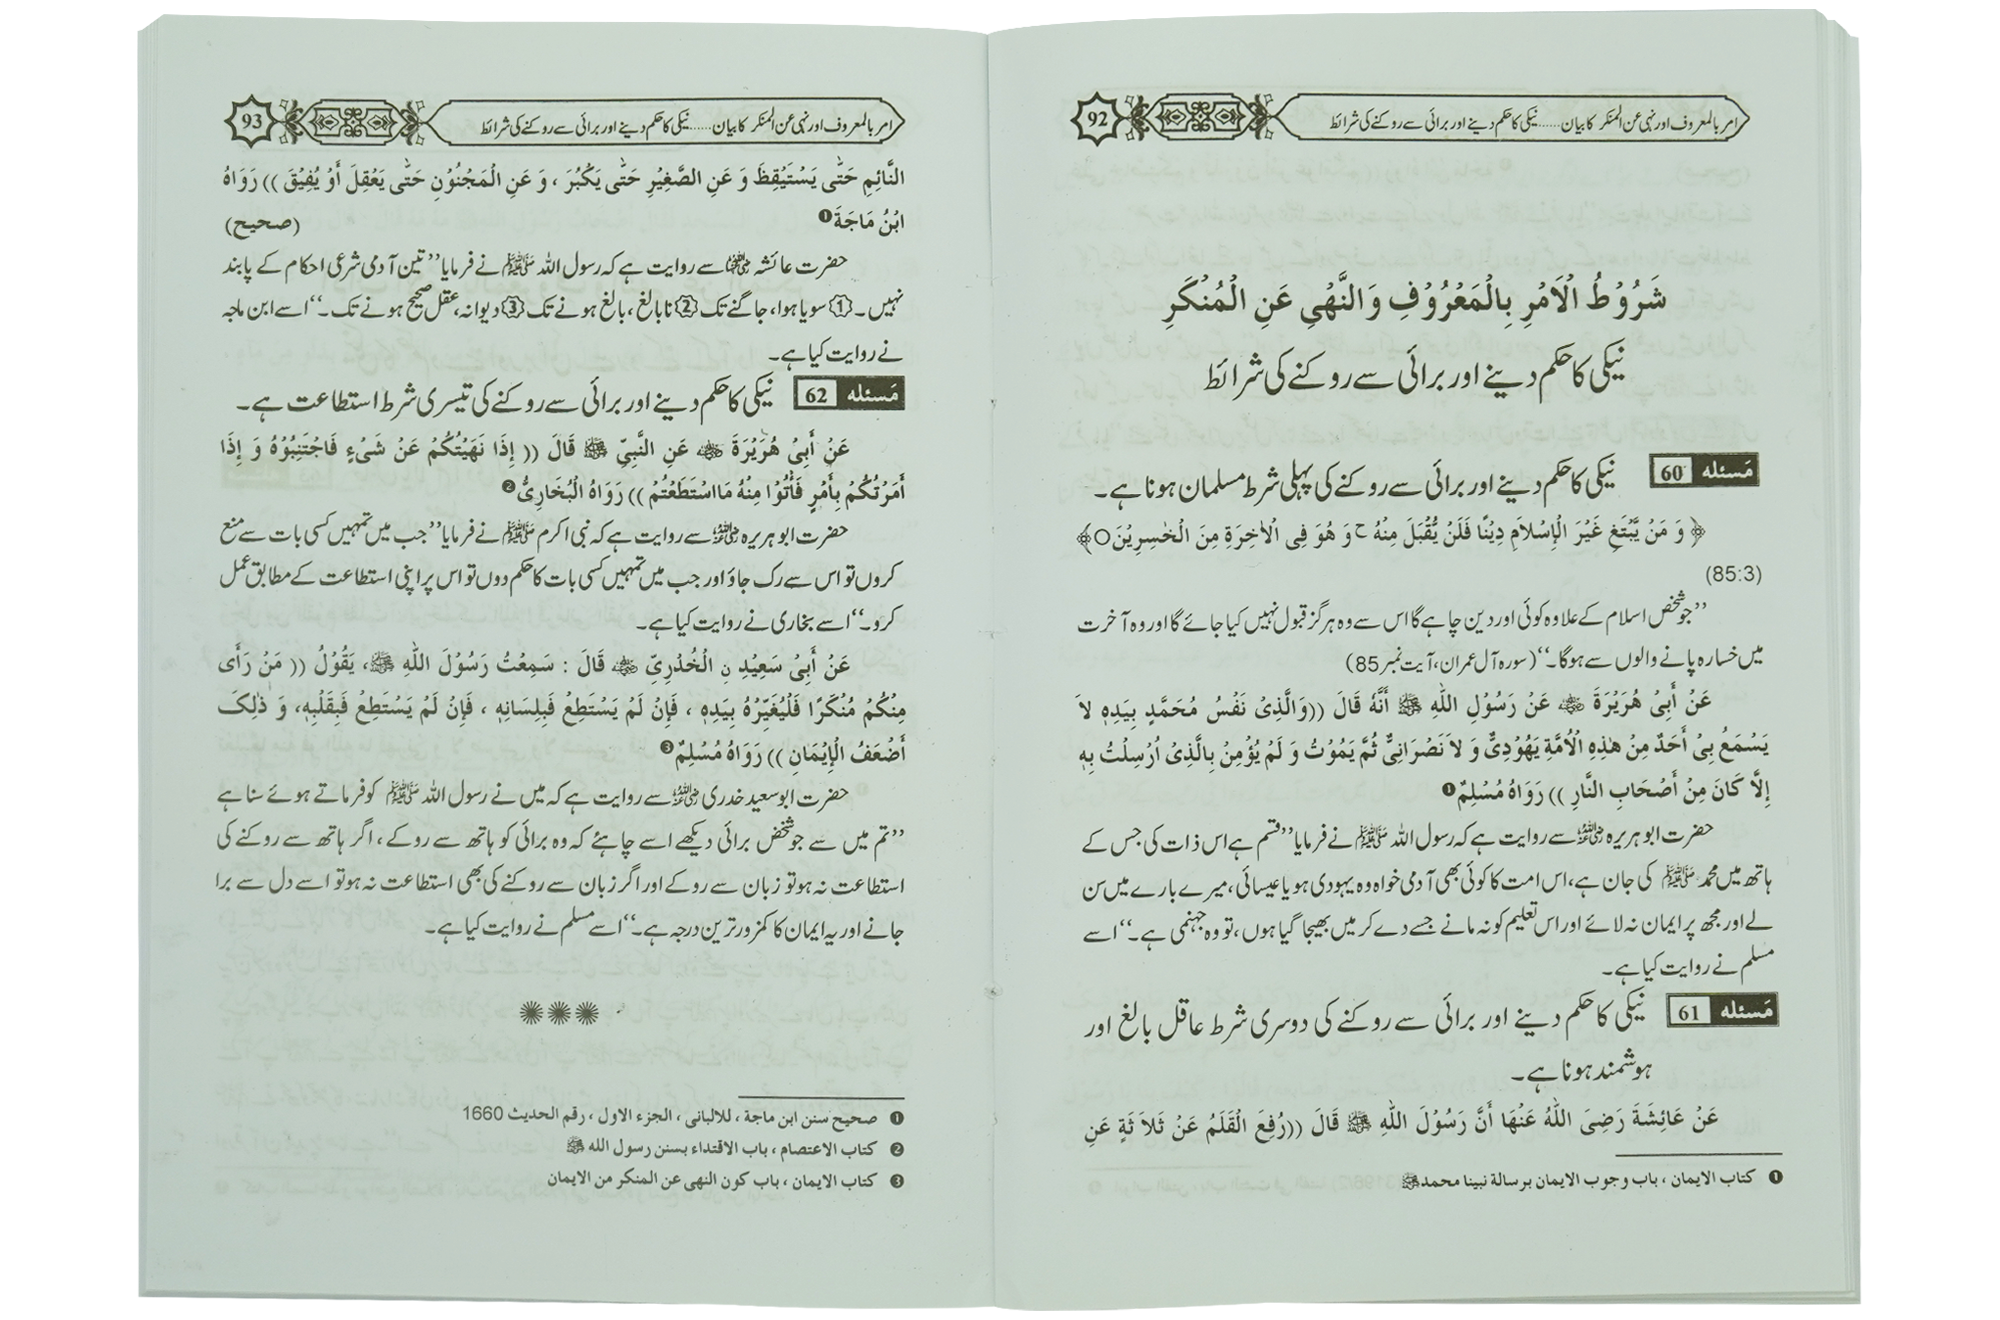 امر بالمعروف اور نہی عن المنکر کا بیان...... نیکی کا حکم دینے اور برائی سے روکنے کی شرائط
92
شَرُوْطُ الْاَمْرِ بِالْمَعْرُوْفِ وَالنَّهْىِ عَنِ الْمُنْكَرِ
نیکی کا حکم دینے اور برائی سے روکنے کی شرائط
مَسئله 60 نیکی کا حکم دینے اور برائی سے روکنے کی پہلی شرط مسلمان ہونا ہے۔
﴿ وَ مَنْ يَّبْتَغِ غَيْرَ الْإِسْلاَمِ دِيْنًا فَلَنْ يُّقْبَلَ مِنْهُ ج وَ هُوَ فِى الْاٰخِرَةِ مِنَ الْخٰسِرِيْنَ○ ﴾
(85:3)
’’جو شخص اسلام کے علاوہ کوئی اور دین چاہے گا اس سے وہ ہرگز قبول نہیں کیا جائے گا اور وہ آخرت
میں خسارہ پانے والوں سے ہوگا۔‘‘ (سورہ آل عمران، آیت نمبر 85)
عَنْ أَبِىْ هُرَيْرَةَ ؓ عَنْ رَسُوْلِ اللّٰهِ ﷺ أَنَّهُ قَالَ ((وَالَّذِىْ نَفْسُ مُحَمَّدٍ بِيَدِهٖ لاَ
يَسْمَعُ بِىْ أَحَدٌ مِنْ هٰذِهِ الْاُمَّةِ يَهُوْدِىٌّ وَ لاَ نَصْرَانِىٌّ ثُمَّ يَمُوْتُ وَ لَمْ يُؤْمِنْ بِالَّذِىْ اُرْسِلْتُ بِهٖ
إِلَّا كَانَ مِنْ أَصْحَابِ النَّارِ )) رَوَاهُ مُسْلِمٌ❶
حضرت ابو ہریرہ ؓ سے روایت ہے کہ رسول اللہ ﷺ نے فرمایا ’’قسم ہے اس ذات کی جس کے
ہاتھ میں محمد ﷺ کی جان ہے، اس امت کا کوئی بھی آدمی خواہ وہ یہودی ہو یا عیسائی، میرے بارے میں سن
لے اور مجھ پر ایمان نہ لائے اور اس تعلیم کو نہ مانے جسے دے کر میں بھیجا گیا ہوں، تو وہ جہنمی ہے۔‘‘ اسے
مسلم نے روایت کیا ہے۔
مَسئله 61 نیکی کا حکم دینے اور برائی سے روکنے کی دوسری شرط عاقل بالغ اور
ہوشمند ہونا ہے۔
عَنْ عَائِشَةَ رَضِىَ اللّٰهُ عَنْهَا أَنَّ رَسُوْلَ اللّٰهِ ﷺ قَالَ ((رُفِعَ الْقَلَمُ عَنْ ثَلاَ ثَةٍ عَنِ
❶ كتاب الايمان ، باب وجوب الايمان برسالة نبينا محمد ﷺ
امر بالمعروف اور نہی عن المنکر کا بیان...... نیکی کا حکم دینے اور برائی سے روکنے کی شرائط
93
النَّائِمِ حَتّٰى يَسْتَيْقِظَ وَ عَنِ الصَّغِيْرِ حَتّٰى يَكْبُرَ ، وَ عَنِ الْمَجْنُوْنِ حَتّٰى يَعْقِلَ أَوْ يُفِيْقَ )) رَوَاهُ
ابْنُ مَاجَةَ❶ (صحيح)
حضرت عائشہ ؓ سے روایت ہے کہ رسول اللہ ﷺ نے فرمایا ’’تین آدمی شرعی احکام کے پابند
نہیں۔ 1 سویا ہوا، جاگنے تک 2 نابالغ، بالغ ہونے تک 3 دیوانہ، عقل صحیح ہونے تک۔‘‘ اسے ابن ماجہ
نے روایت کیا ہے۔
مَسئله 62 نیکی کا حکم دینے اور برائی سے روکنے کی تیسری شرط استطاعت ہے۔
عَنْ أَبِىْ هُرَيْرَةَ ؓ عَنِ النَّبِىِّ ﷺ قَالَ (( إِذَا نَهَيْتُكُمْ عَنْ شَىْءٍ فَاجْتَنِبُوْهُ وَ إِذَا
أَمَرْتُكُمْ بِأَمْرٍ فَأْتُوْا مِنْهُ مَااسْتَطَعْتُمْ )) رَوَاهُ الْبُخَارِىُّ❷
حضرت ابو ہریرہ ؓ سے روایت ہے کہ نبی اکرم ﷺ نے فرمایا ’’جب میں تمہیں کسی بات سے منع
کروں تو اس سے رک جاؤ اور جب میں تمہیں کسی بات کا حکم دوں تو اس پر اپنی استطاعت کے مطابق عمل
کرو۔‘‘ اسے بخاری نے روایت کیا ہے۔
عَنْ أَبِىْ سَعِيْدِ نِ الْخُدْرِىِّ ؓ قَالَ : سَمِعْتُ رَسُوْلَ اللّٰهِ ﷺ، يَقُوْلُ (( مَنْ رَأَى
مِنْكُمْ مُنْكَرًا فَلْيُغَيِّرْهُ بِيَدِهٖ ، فَإِنْ لَمْ يَسْتَطِعْ فَبِلِسَانِهٖ ، فَإِنْ لَمْ يَسْتَطِعْ فَبِقَلْبِهٖ، وَ ذٰلِكَ
أَضْعَفُ الْإِيْمَانِ )) رَوَاهُ مُسْلِمٌ❸
حضرت ابو سعید خدری ؓ سے روایت ہے کہ میں نے رسول اللہ ﷺ کو فرماتے ہوئے سنا ہے
’’تم میں سے جو شخص برائی دیکھے اسے چاہئے کہ وہ برائی کو ہاتھ سے روکے، اگر ہاتھ سے روکنے کی
استطاعت نہ ہو تو زبان سے روکے اور اگر زبان سے روکنے کی بھی استطاعت نہ ہو تو اسے دل سے برا
جانے اور یہ ایمان کا کمزور ترین درجہ ہے۔‘‘ اسے مسلم نے روایت کیا ہے۔
❶ صحيح سنن ابن ماجة ، للالبانى ، الجزء الاول ، رقم الحديث 1660
❷ كتاب الاعتصام ، باب الاقتداء بسنن رسول الله ﷺ
❸ كتاب الايمان ، باب كون النهى عن المنكر من الايمان